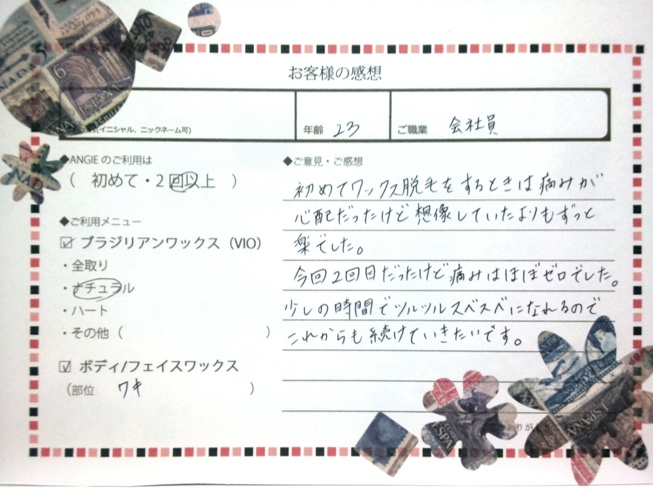 お客様の感想
(イニシャル、ニックネーム可)
年齢 23
ご職業 会社員
◆ANGIEのご利用は
( 初めて・2回以上 )
◆ご利用メニュー
☑ ブラジリアンワックス (VIO)
・全取り
・ナチュラル
・ハート
・その他 ( )
☑ ボディ/フェイスワックス
(部位 ワキ )
◆ご意見・ご感想
初めてワックス脱毛をするときは痛みが
心配だったけど想像していたよりもずっと
楽でした。
今回2回目だったけど痛みはほぼゼロでした。
少しの時間でツルツルスベスベになれるので
これからも続けていきたいです。